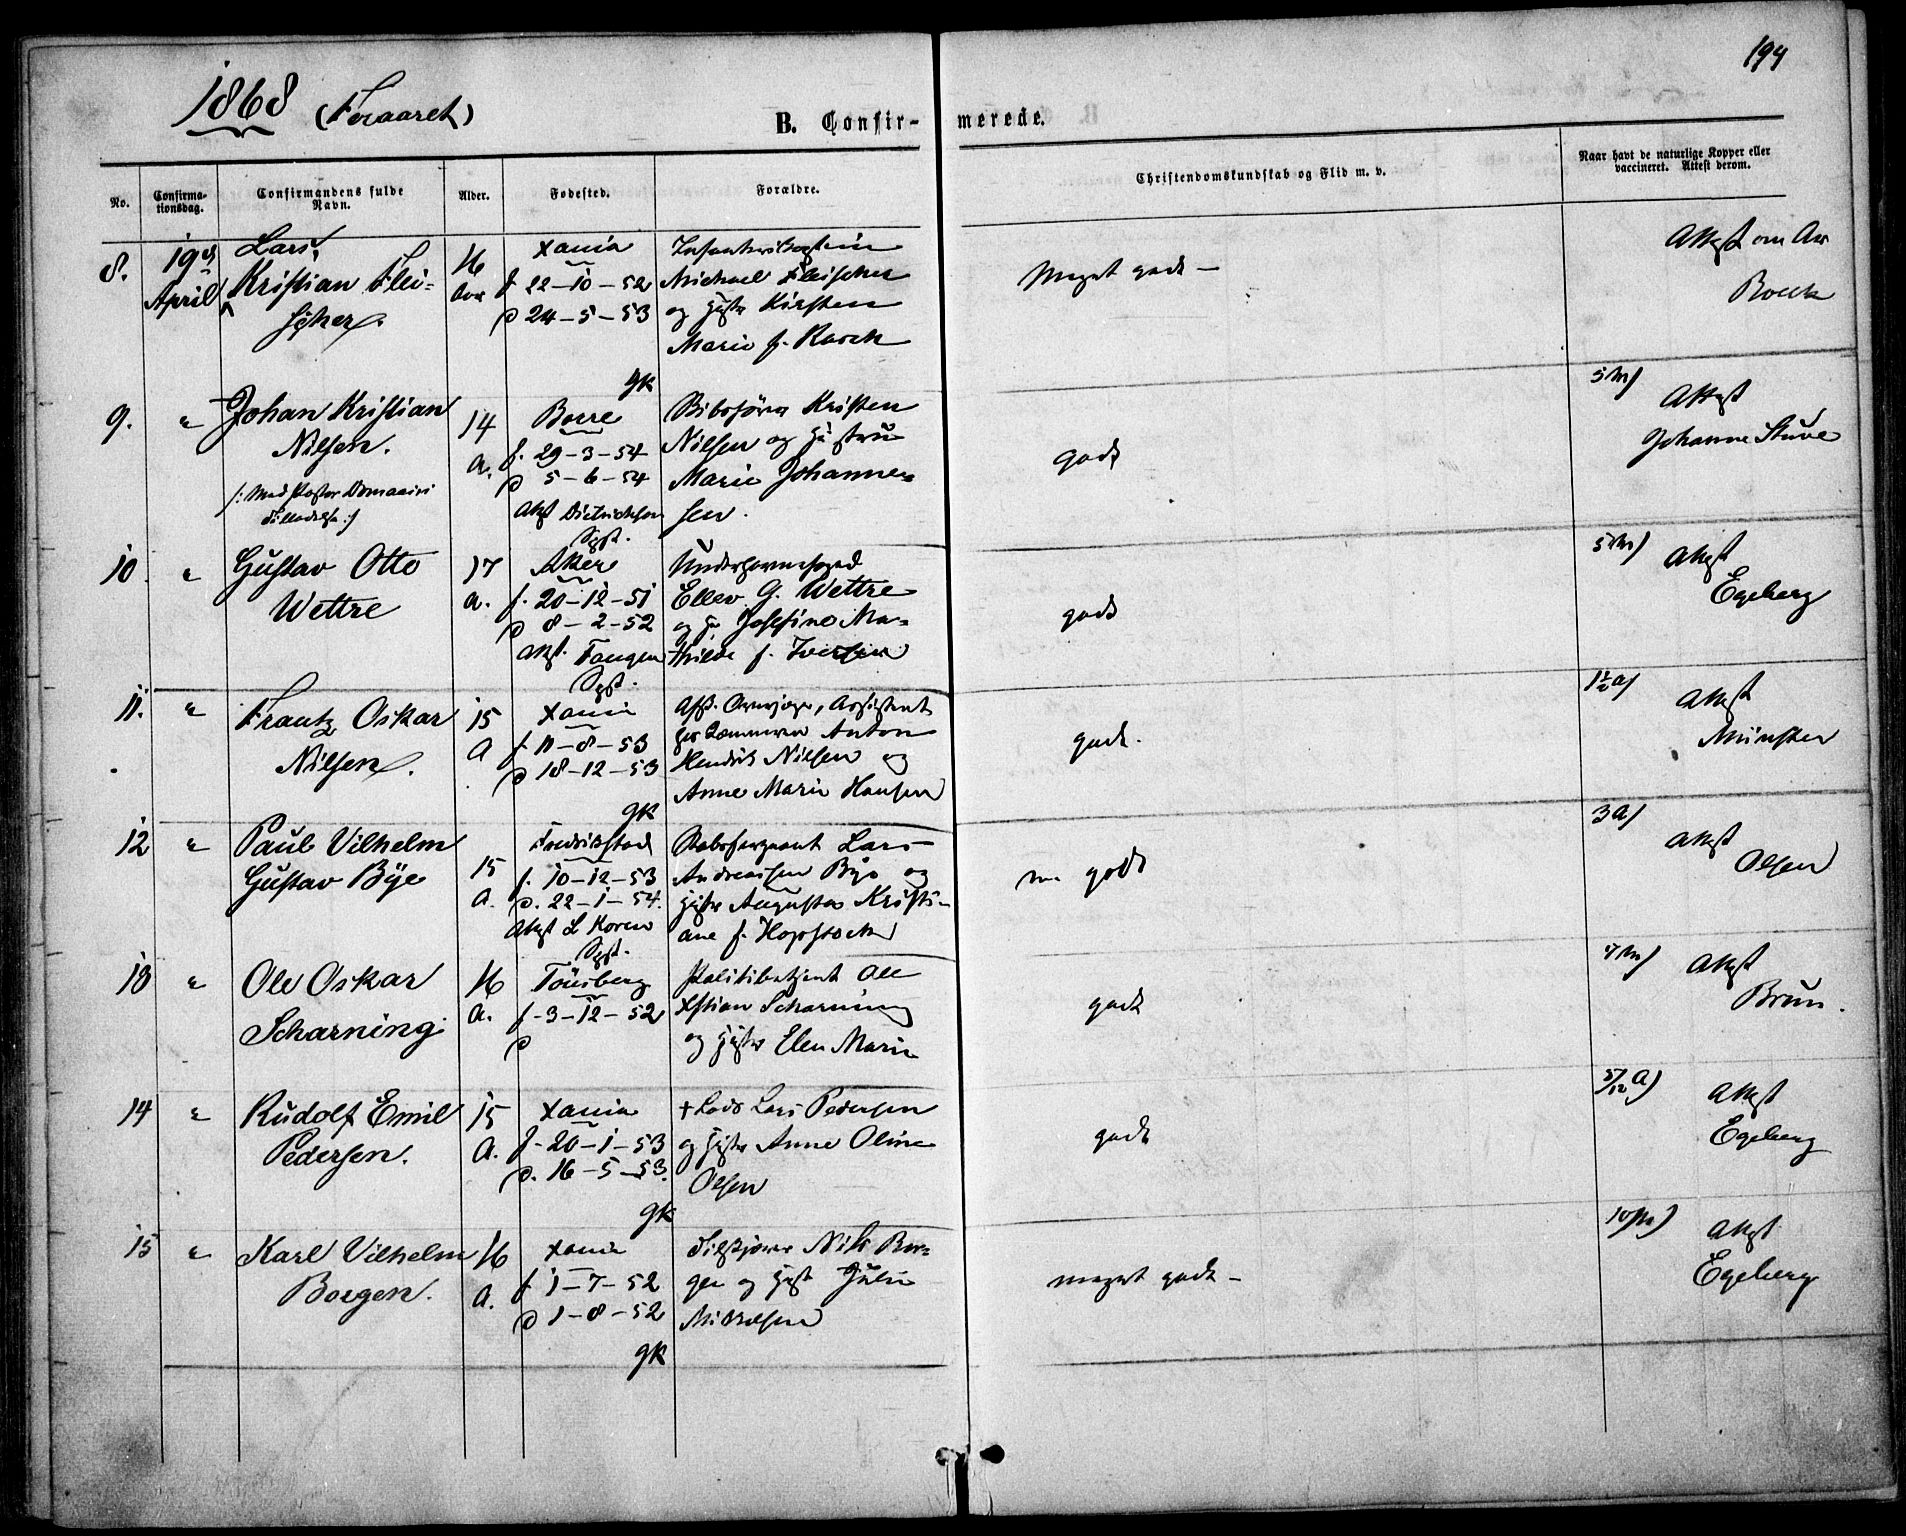 194
1868 (Foraaret)
B. Confir- merede.
No.
Confirma-
tionsdag.
Confirmandens fulde
Navn.
Alder.
Fødested.
Forældre.
Christendomskundskab og Flid m. v.
Naar havt de naturlige Kopper eller
vaccineret. Attest derom.
8.
19de
April
Lars
Kristian Flei-
scher
16
Xania
f 22-10-52
d 24-5-53
gk
Michael Fleischer
og Hustr Kirsten
Marie f.
Meget godt -
Attest om Ar
Boeck
9.
"
Johan Kristian
Nilsen.
14
a.
Borre
f. 29-3-54
d 5-6-54
Attst Dietrichson
Spst.
Kristen
Nilsen og Hustru
Marie Johanne-
sen.
godt
5 M)
Attest
Johanne Stuve
10.
"
Gustav Otto
Wettre
17
a.
Aker
f. 20-12-51
d 8-2-52
Attst. Tangen
Spst.
Ellev G. Wettre
og H. Josefine Ma-
thilde f. Iversen
godt
5 M)
Attest
Egeberg
11.
"
Frantz Oskar
Nilsen.
15
A
Xania
f 11-8-53
d 18-12-53
gk
Assistent
Anton
Hendrik Nilsen og
Anne Marie Hansen
godt.
1½ a)
Attest
Münster
12
"
Paul Vilhelm
Gustav Bye
15
a.
Fredrikstad
f. 10-12-53
d. 22-1-54.
Attst L Koren
Spst.
Lars
Andreassen Bye og
Hustr Augusta Kristi-
ane f. Hopstock
m godt
3 a)
Attest
Olsen
13
"
Ole Oskar
Scharning
16
a.
Tönsberg
f. 3-12-52
d
Politibetjent Ole
Xstian Scharning
og Hustr Elen Marie
godt
7 M)
Attest
Brun.
14
"
Rudolf Emil
Pedersen.
15
a.
Xania
f. 20-1-53
d. 16-5-53.
gk
+ Lods Lars Pedersen
og Hustr Anne Oline
Olsen
godt
5/12 a)
Attest
Egeberg
15
"
Karl Vilhelm
Borgen.
16
a.
Xania
f 1-7-52
d 1-8-52
gk
Nils Bor-
gen og Hust Julie
meget godt -
10 M)
Attest
Egeberg